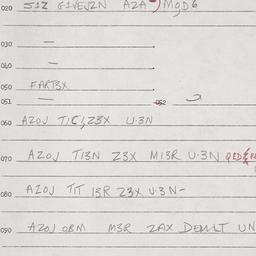 020 51Z G1VEJZN AZA MGD6
030 —
040 —
050 FART3X
051 — 052
060 AZOJ T1C1,Z3X U·3N
070 AZOJ T13N Z3X M13R U·3N
080 AZOJ T1T 13R Z3X U·3N-
090 AZOJ OBM M3R ZAX DEMLT UN